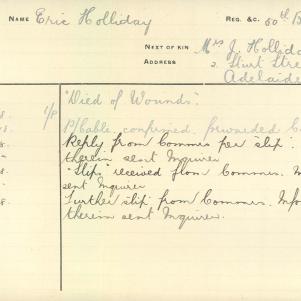 NAME Eric Holliday REG. &C. 50th B
NEXT OF KIN Mrs J. Hollida
ADDRESS 2 Sturt Stre
Adelaide
8. 1/8 "Died of Wounds".
8. P/Cable, confirmed. forwarded C
8. Reply from Commrs per slip.
therein sent Inquirer
"Slips" received from Commrs.
8. sent Inquirer
8. Further slip from Commrs. Info
therein sent Inquirer.